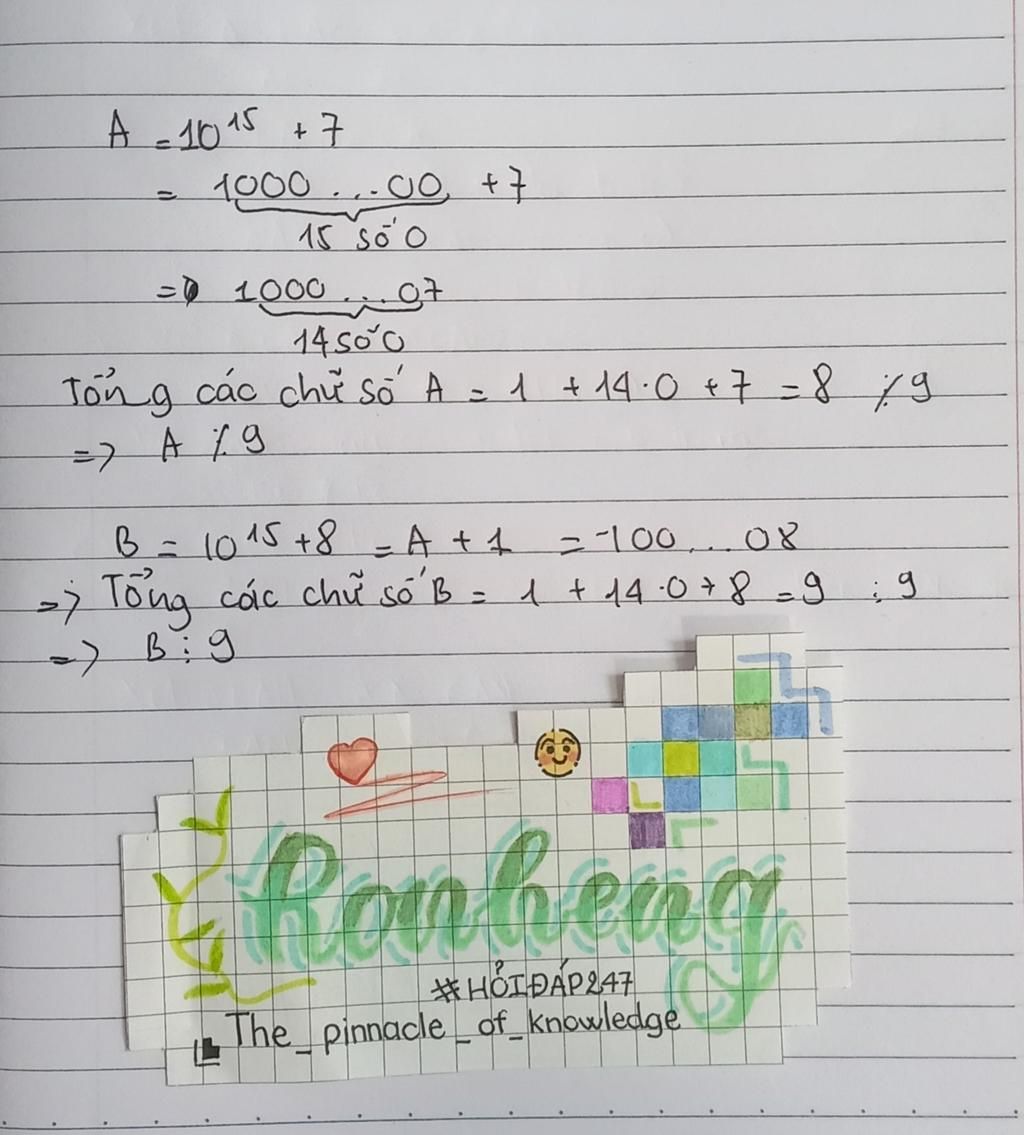 A = 10¹⁵ + 7
= 1000...00 + 7
15 số 0
=> 1000...07
14 số 0
Tổng các chữ số A = 1 + 14.0 + 7 = 8 ⋮̸ 9
=> A ⋮̸ 9
B = 10¹⁵ + 8 = A + 1 = 100...08
=> Tổng các chữ số B = 1 + 14.0 + 8 = 9 ⋮ 9
=> B ⋮ 9
Ronheng
#HỎIĐÁP247
The_pinnacle_of_knowledge